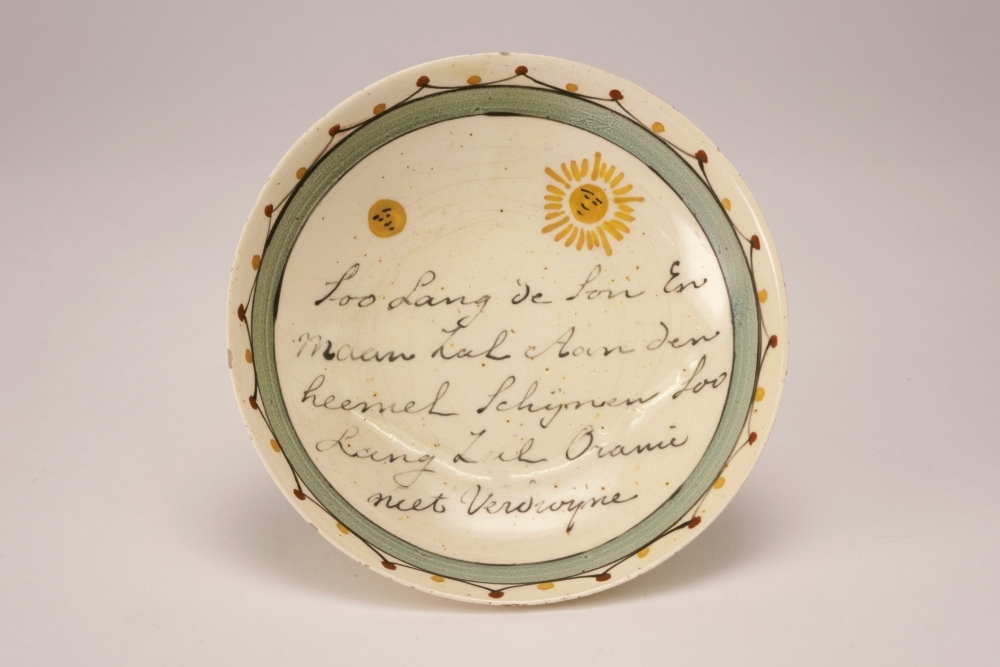 Soo Lang de Son En
maan Zal Aan den
heemel Schijnen Soo
Lang Zal Oranie
niet Verdwijne